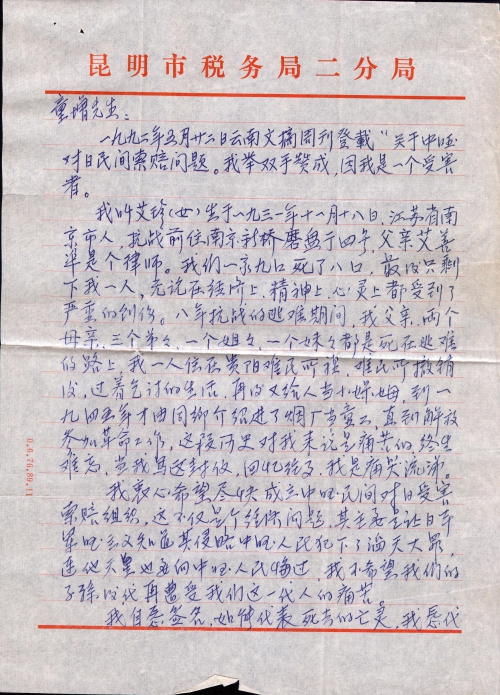 昆明市税务局二分局
童增先生：
一九九二年五月廿二日云南文摘周刊登載“关于中国
对日民间索赔问题。我举双手赞成，因我是一个受害
者。
我叫艾珍（女）生于一九三一年十一月十八日，江苏省南
京市人，抗战前住南京新桥磨盘 四号，父亲艾善
 是个律师。我们一家九口死了八口，最后只剩
下我一人，无论在经济上、精神上、心灵上都受到了
严重的创伤。八年抗战的逃难期间，我父亲、两个
母亲、三个弟々、一个姐々、一个妹々都是死在逃难
的路上，我一人住在贵阳难民所里，难民所撤销
后，过着乞讨的生活，再后又给人当小保姆，到一
九四五年才由同乡介绍进了烟厂当童工，直到解放
参加革命工作，这段历史对我来说是痛苦的，终生
难忘，当我写这封信，回忆往事，我是痛哭流涕。
我衷心希望尽快成立中国民间对日受害
索赔组织，这不仅是个经济问题，其主要是让日本
军国主义知道其侵略中国人民犯下了滔天大罪，
连他天皇也要向中国人民悔过，我不希望我们的
子孙后代再遭受我们这一代人的痛苦。
我自愿签名，如能代表死去的亡灵，我愿代
0.6.76,89.11